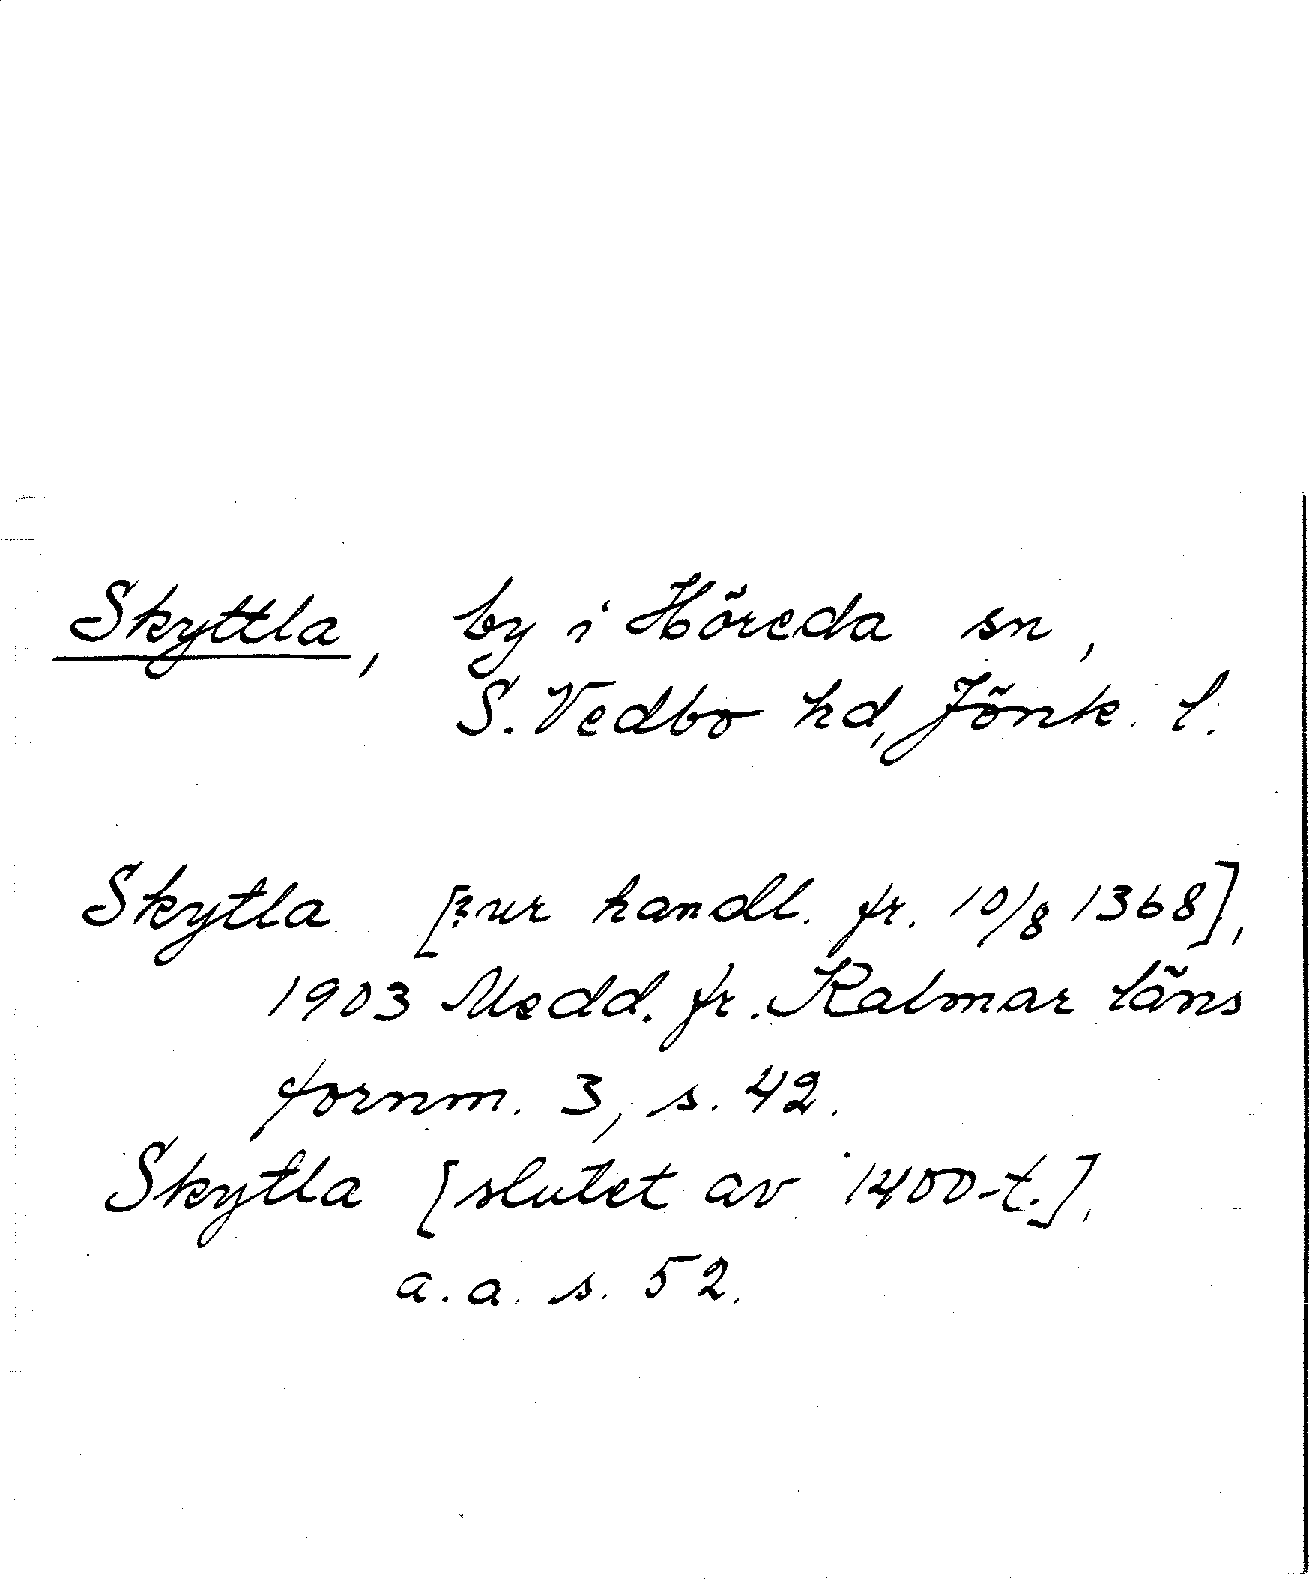 Skyttla, by i Höreda sn,
S. Vedbo hd, Jönk. l.
Skytla [?ur handl. fr. 10/8 1368],
1903 Medd. fr. Kalmar läns
fornm. 3, s. 42.
Skytla [slutet av 1400-t.],
a.a. s. 52.